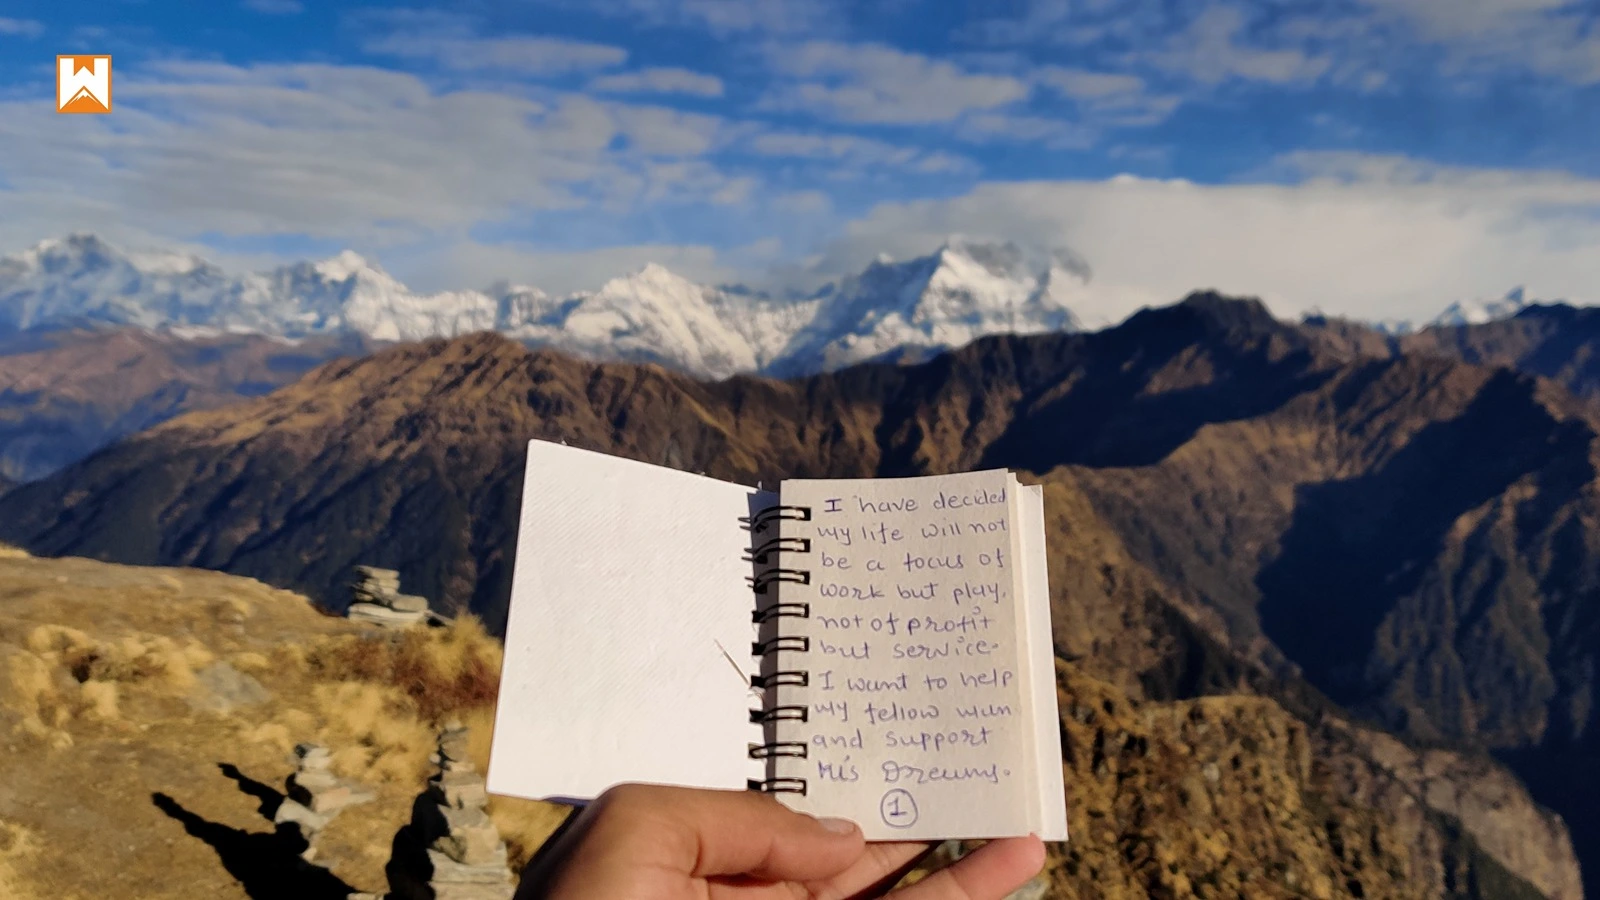 W
I have decided
my life will not
be a focus of
work but play,
not of profit
but service.
I want to help
my fellow man
and support
His Dreams.
1